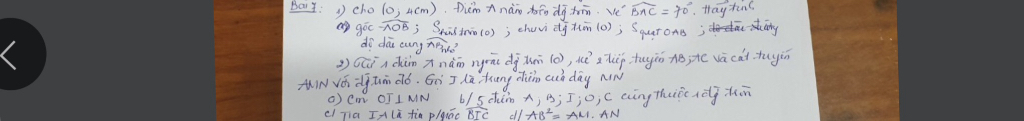 Bài 7: 1) Cho (O; 4cm). Điểm A nằm trên đg tròn. Vẽ BAC = 70°. Hãy tính
a) góc AOB; Shình tròn (O); chu vi đg tròn (O); Squạt OAB;
độ dài cung AB nhỏ
2) Từ 1 điểm A nằm ngoài đg tròn (O), kẻ 2 tiếp tuyến AB, AC và cát tuyến
AMN với đg tròn đó. Gọi I là trung điểm của dây MN
a) Cm OI ⊥ MN b/ 5 điểm A, B; I; O, C cùng thuộc 1 đg tròn
c/ Tia IA là tia p/giác BIC d/ AB² = AM. AN